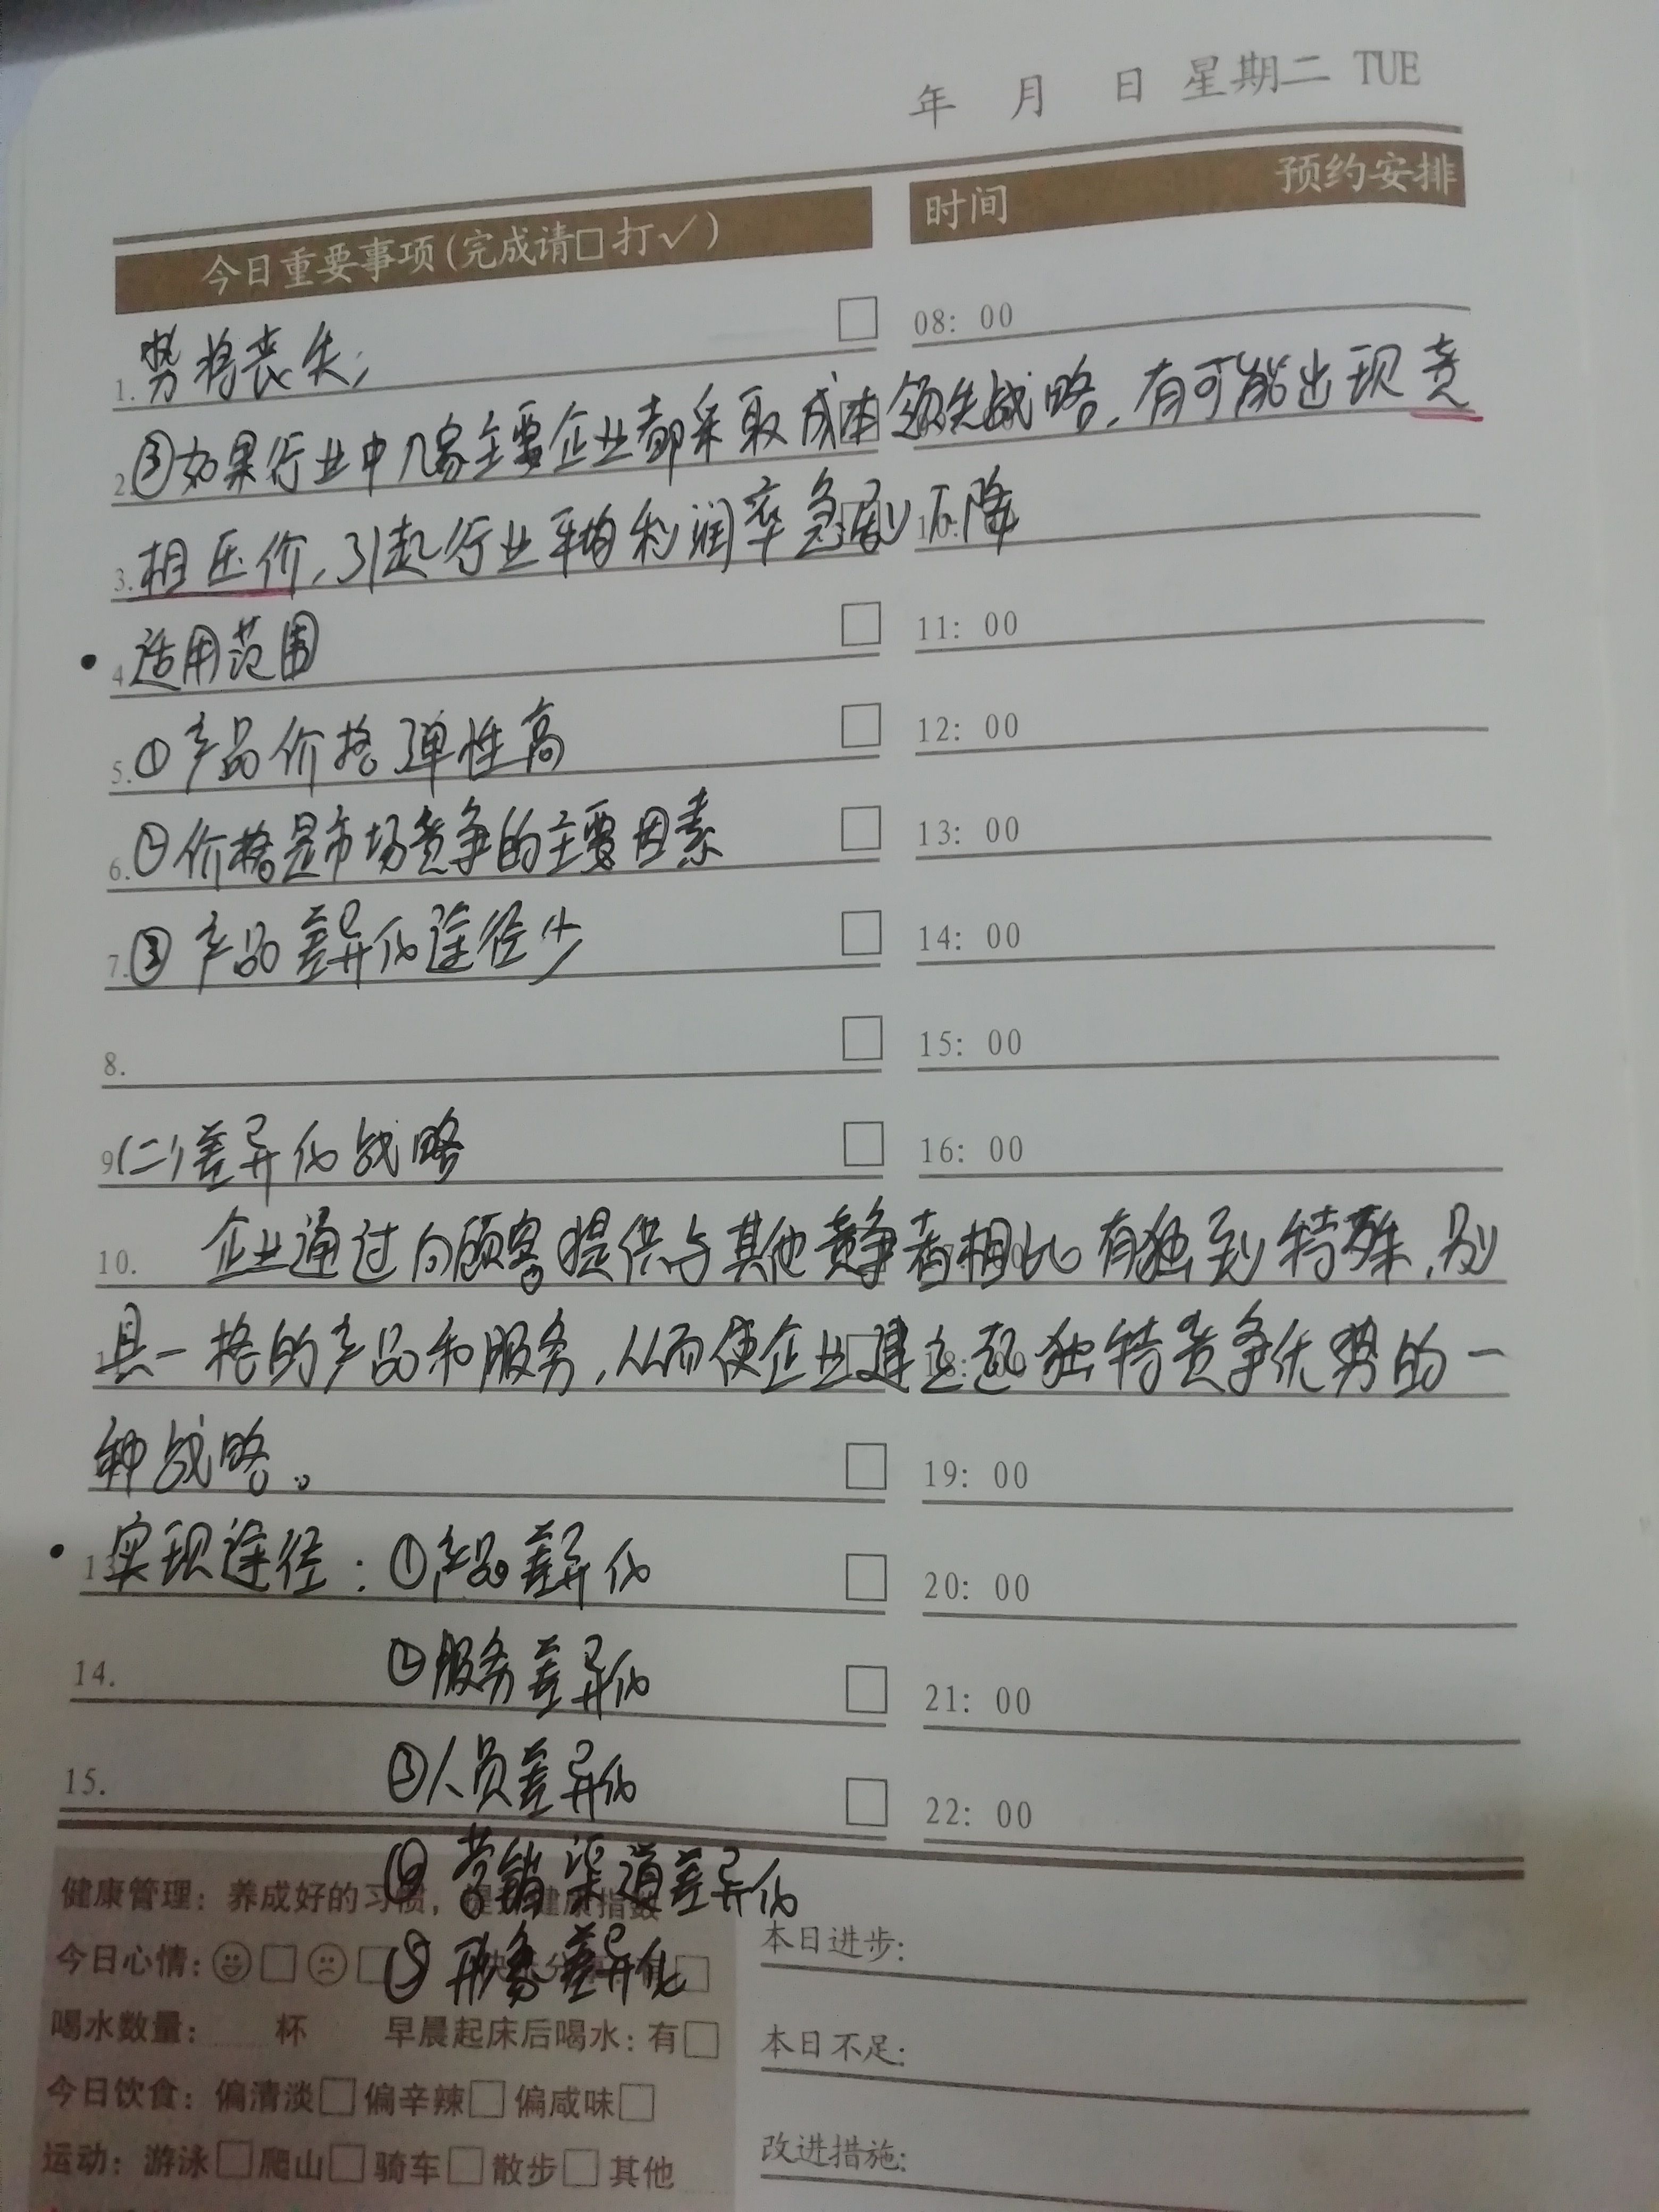 年 月 日 星期二 TUE
今日重要事项(完成请□打√)
时间 预约安排
1.势将丧失;
08: 00
2.③如果行业中几家主要企业都采取成本领先战略,有可能出现竞
3.相压价,引起行业平均利润率急剧下降
• 4适用范围
11: 00
5.①产品价格弹性高
12: 00
6.②价格是市场竞争的主要因素
13: 00
7.③产品差异化途径少
14: 00
8.
15: 00
9(二)差异化战略
16: 00
10. 企业通过向顾客提供与其他竞争者相比有独到特殊,别
具一格的产品和服务,从而使企业建立起独特竞争优势的一
种战略。
19: 00
• 13实现途径:①产品差异化
20: 00
14. ②服务差异化
21: 00
15. ③人员差异化
22: 00
④营销渠道差异化
健康管理:养成好的习惯,健康指数
⑤形象差异化
今日心情:
本日进步:
喝水数量: 杯 早晨起床后喝水:有□
本日不足:
今日饮食:偏清淡□偏辛辣□偏咸味□
运动:游泳□爬山□骑车□散步□其他
改进措施: